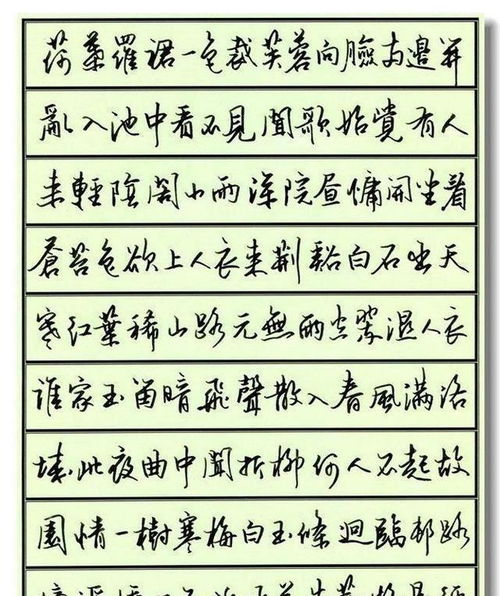 荷葉羅裙一色裁芙蓉向臉兩邊開
亂入池中看不見聞歌始覺有人
來輕陰閣小雨深院晝慵開坐看
蒼苔色欲上人衣來荊谿白石出天
寒紅葉稀山路元無雨空翠濕人衣
誰家玉笛暗飛聲散入春風滿洛
城此夜曲中聞折柳何人不起故
園情一樹寒梅白玉條迴臨邨路